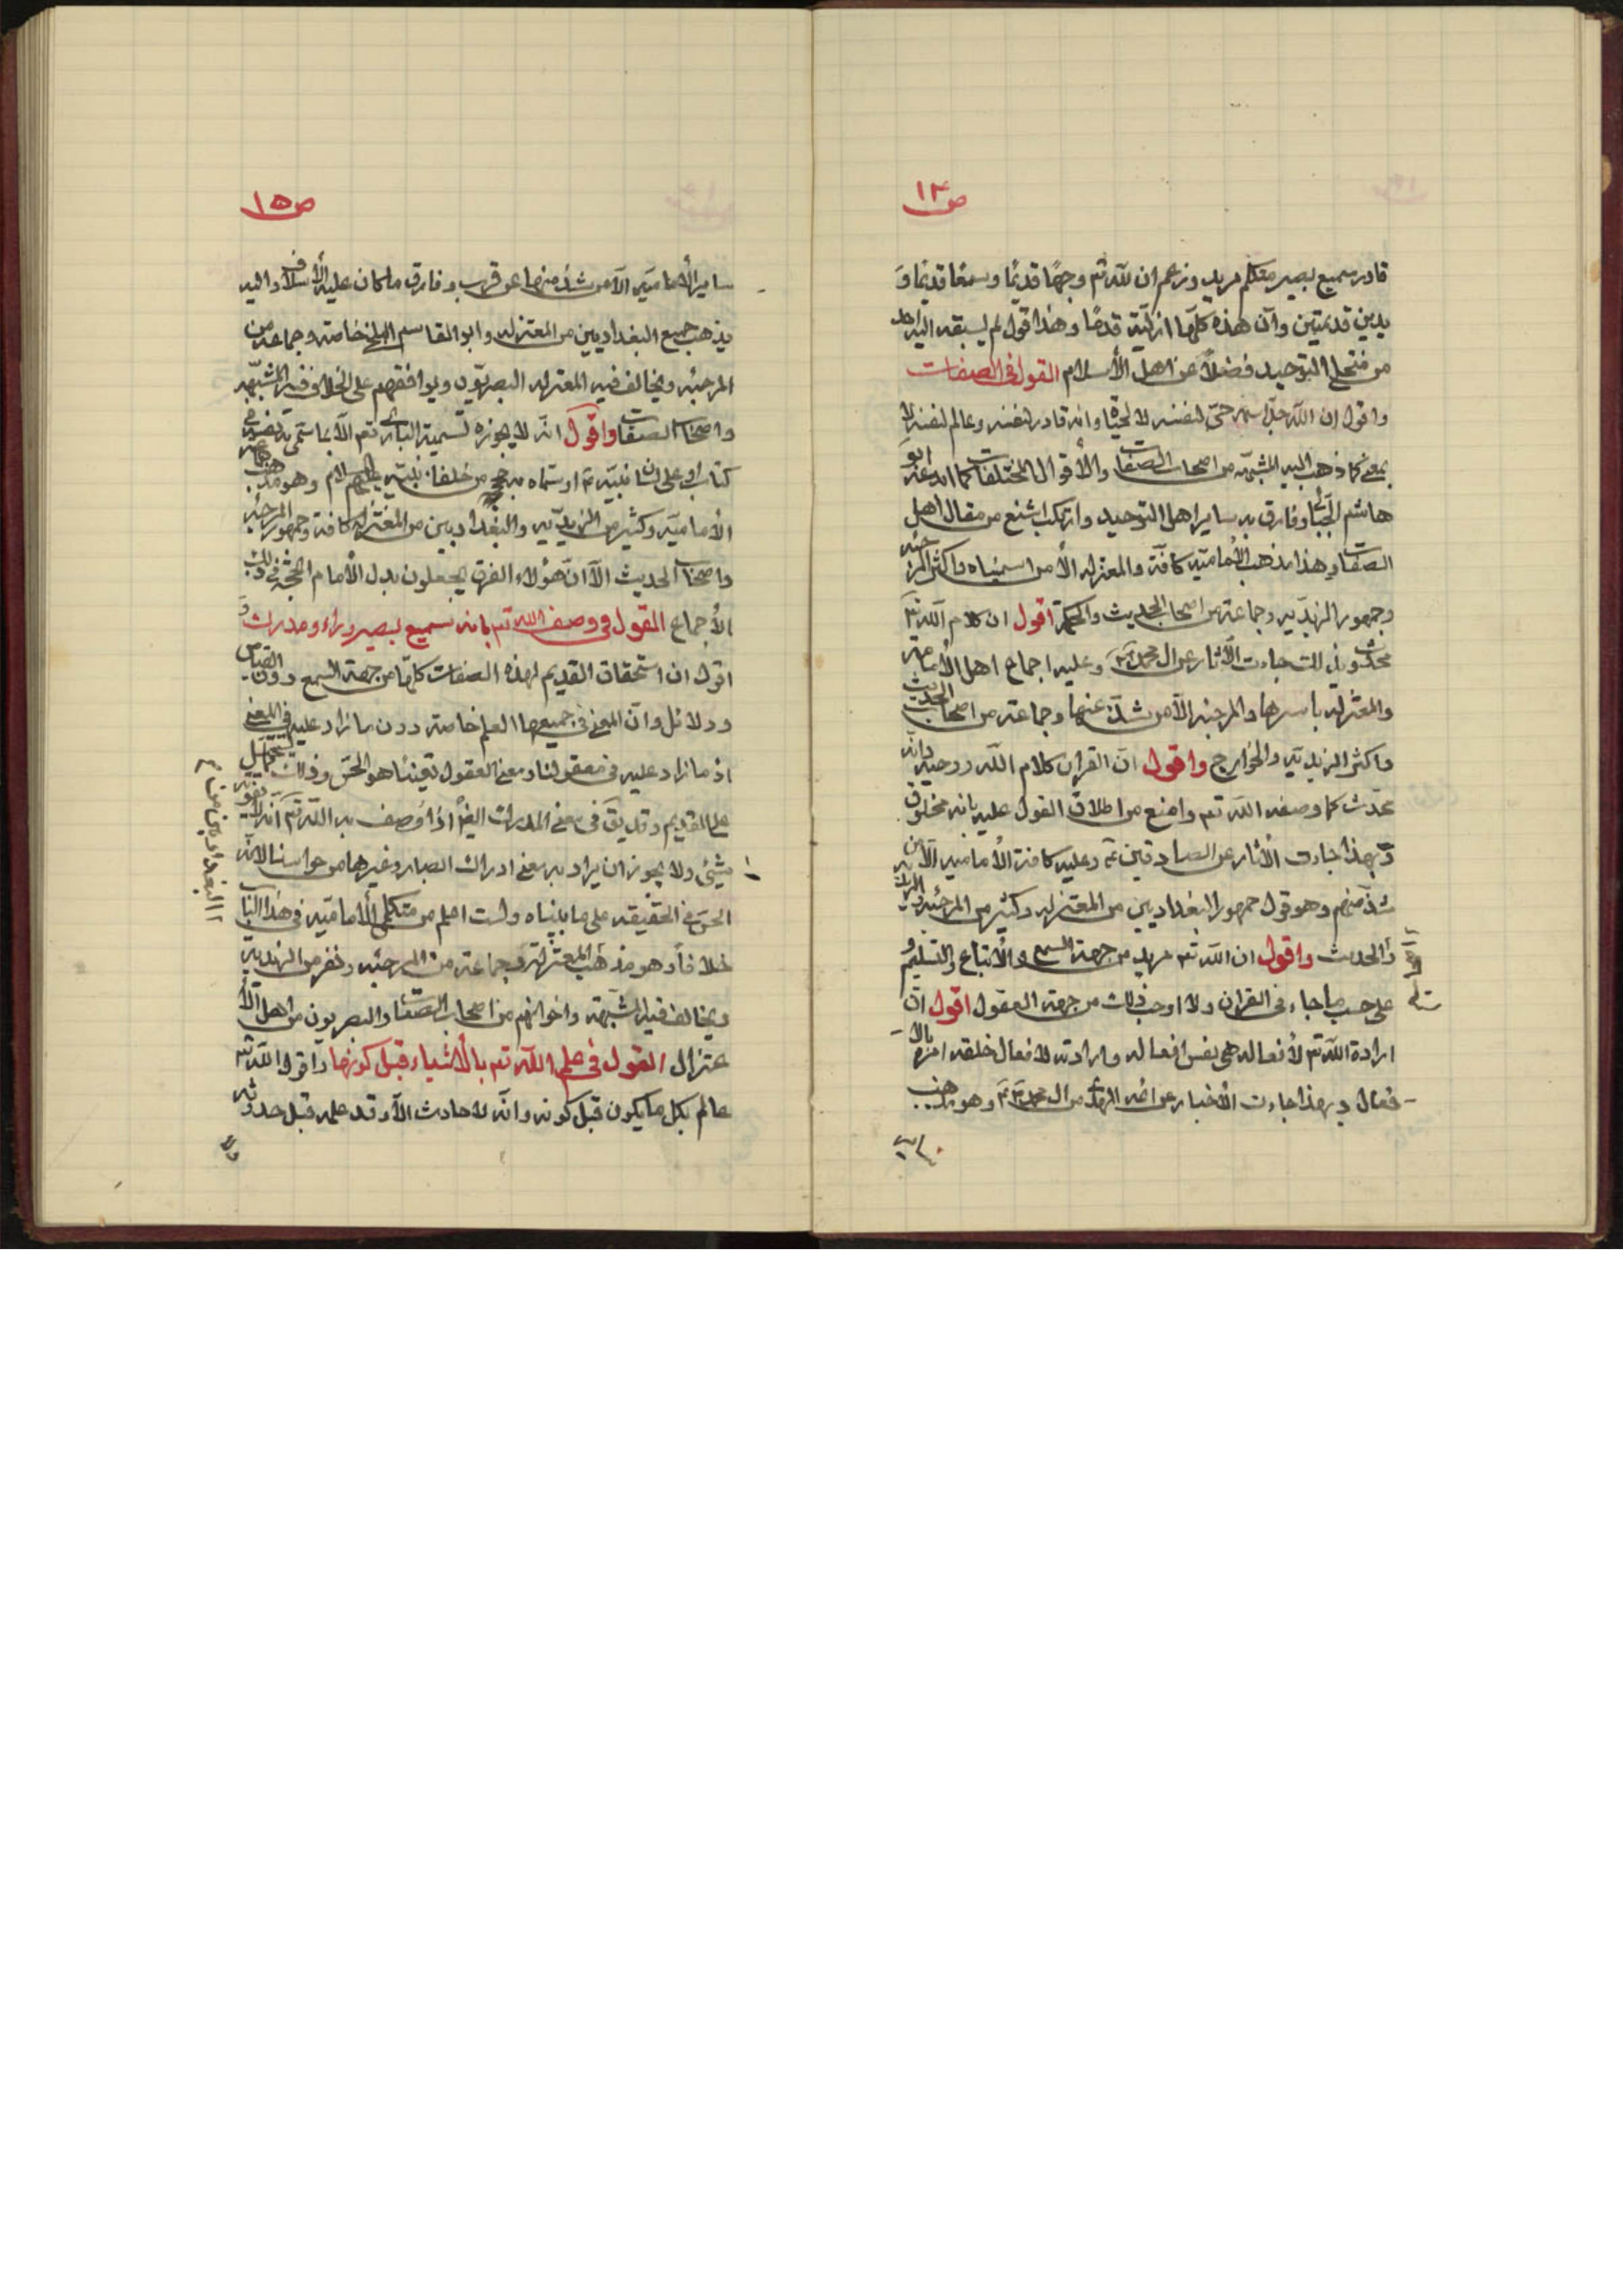 ص١٤
قادر سميع بصير متكلم مريد وزعم ان لله تم وجهًا قديمًا وسمعًا قديمًا و
يدين قديمتين وأن هذه كلها ازلية قدمًا وهذا قول لم يسبقه اليه احد
من منتحلي التوحيد فضلًا عن اهل الأسلام القول في الصفات
واقول ان الله جل اسمه حي لنفسه لا لحيوة وانه قادر لنفسه وعالم لنفسه لا
بمعنى كما ذهب اليه المشبهه من اصحاب الصفات والأقوال المختلفات كما ابدعه ابو
هاشم الجبائي وفارق به ساير اهل التوحيد وارتكب اشنع من مقال اهل
الصفات وهذا مذهب الإمامية كافة والمعتزله الأ من اسميناه واكثر المرجئه
وجمهور الزيديه وجماعة من اصحاب الحديث والمحكمة اقول ان كلام الله تم
محدث وبذلك جاءت الآثار عن ال محمد وعليه اجماع اهل الأماميه
والمعتزله باسرها والمرجئه الآ من شذ عنها وجماعة من اصحاب الحديث
واكثر الزيديه والخوارج واقول ان القران كلام الله ووحيه وانه
محدث كما وصفه الله تم وامنع من اطلاق القول عليه بانه مخلوق
وبهذا جاءت الأثار عن الصادقين ع وعليه كافة الأماميه الآ من
شذ منهم وهو قول جمهور البغداديين من المعتزله وكثير من المرجئه والزيديه
والحديث واقول ان الله تم مريد من جهة السمع والأتباع والتسليم
على حسب ما جاء في القران ولا اوجب ذلك من جهة العقول اقول ان
ارادة الله تم لأفعاله هي نفس افعاله وارادته لافعال خلقه امره بالا
فعال وبهذا جاءت الأخبار عن ائمه الهدى من ال محمد وهو مذهب
ص١٥
ساير الأماميه الآ من شذ منها عن قرب وفارق ما كان عليه الأسلاف واليه
يذهب جميع البغداديين من المعتزله وابو القاسم البلخي خاصة وجماعة من
المرجئه ويخالف فيه المعتزله البصريون ويوافقهم على الخلاف فيه المشبهه
واصحاب الصفات واقول انه لا يجوز تسمية الباري تم الآ بما سمى به نفسه في
كتابه او على لسان نبيه او سماه به حججه من خلفاء نبيه عليهم السلام وهو مذهب جماعة
الأماميه وكثير من الزيديه والبغداديين من المعتزله كافة وجمهور المرجئه
واصحاب الحديث الآ ان هؤلاء الفرق يجعلون بدل الأمام الحجة في ذلك
الأجماع القول في وصف الله تم بانه سميع بصير وراء ومدرك و
اقول ان استحقاق القديم لهذه الصفات كلها من جهة السمع دون القياس
ودلائل وان المعنى في جميعها العلم خاصة دون ما زاد عليه في المعنى
اذ ما زاد عليه في معقولنا ومعنى العقول تعيننا هو الحس وذلك يستحيل
على القديم وقد يق في معنى المدرك ايضًا اذا وصف به الله تم انه لا يفوته
شيئ ولا يجوز ان يراد به معنى ادراك الصبار وغيرها من حواسنا لانه
الحس في الحقيقه على ما بيناه ولست اعلم من متكلمي الأماميه في هذا الباب
خلافًا وهو مذهب المعتزله وجماعة من المرجئه ونفر من الزيديه
ويخالف فيه المشبهه واخوانهم من اصحاب الصفات والبصريون من اهل الأ
عتزال القول في علم الله تم بالأشياء قبل كونها واقول ان الله تم
عالم بكل ما يكون قبل كونه وانه لا حادث الآ وقد علمه قبل حدوثه